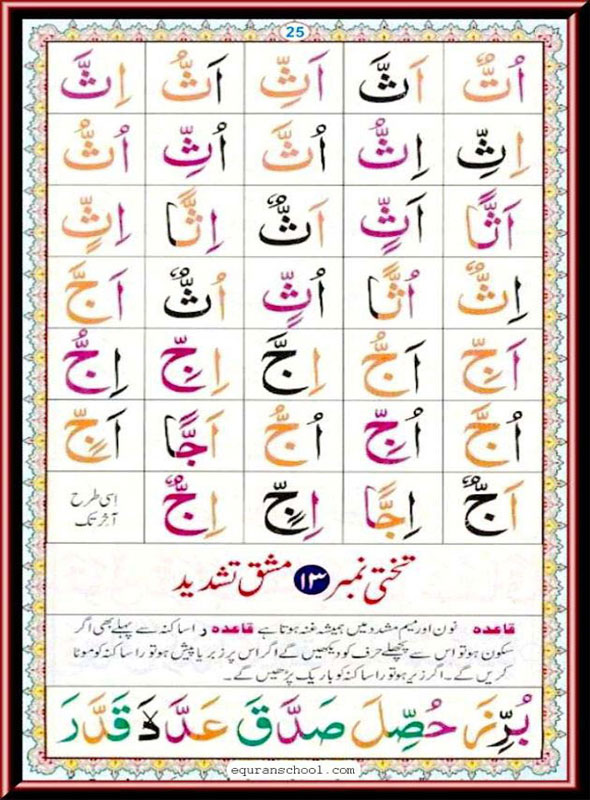 25
اُتٌّ اَثَّ اَثِّ اَثُّ اِثَّ
اِثِّ اِثُّ اُثَّ اُثِّ اُثُّ
اَثًّا اَثٍّ اَثٌّ اِثًّا اِثٍّ
اِثٌّ اُثًّا اُثٍّ اُثٌّ اَجَّ
اَجِّ اَجُّ اِجَّ اِجِّ اِجُّ
اُجَّ اُجِّ اُجُّ اَجًّا اَجٍّ
اَجٌّ اِجًّا اِجٍّ اِجٌّ اسی طرح آخر تک
تختی نمبر ۱۳ مشق تشدید
قاعدہ نون اور میم مشدد میں ہمیشہ غنہ ہوتا ہے قاعدہ را ساکنہ سے پہلے بھی اگر
سکون ہو تو اس سے پچھلے حرف کو دیکھیں گے اگر اس پر زبر یا پیش ہو تو را ساکنہ کو موٹا
کریں گے۔ اگر زیر ہو تو را ساکنہ کو باریک پڑھیں گے۔
بُرِّزَ حُصِّلَ صَدَّقَ عَدَّدَہٗ قَدَّرَ
equranschool.com